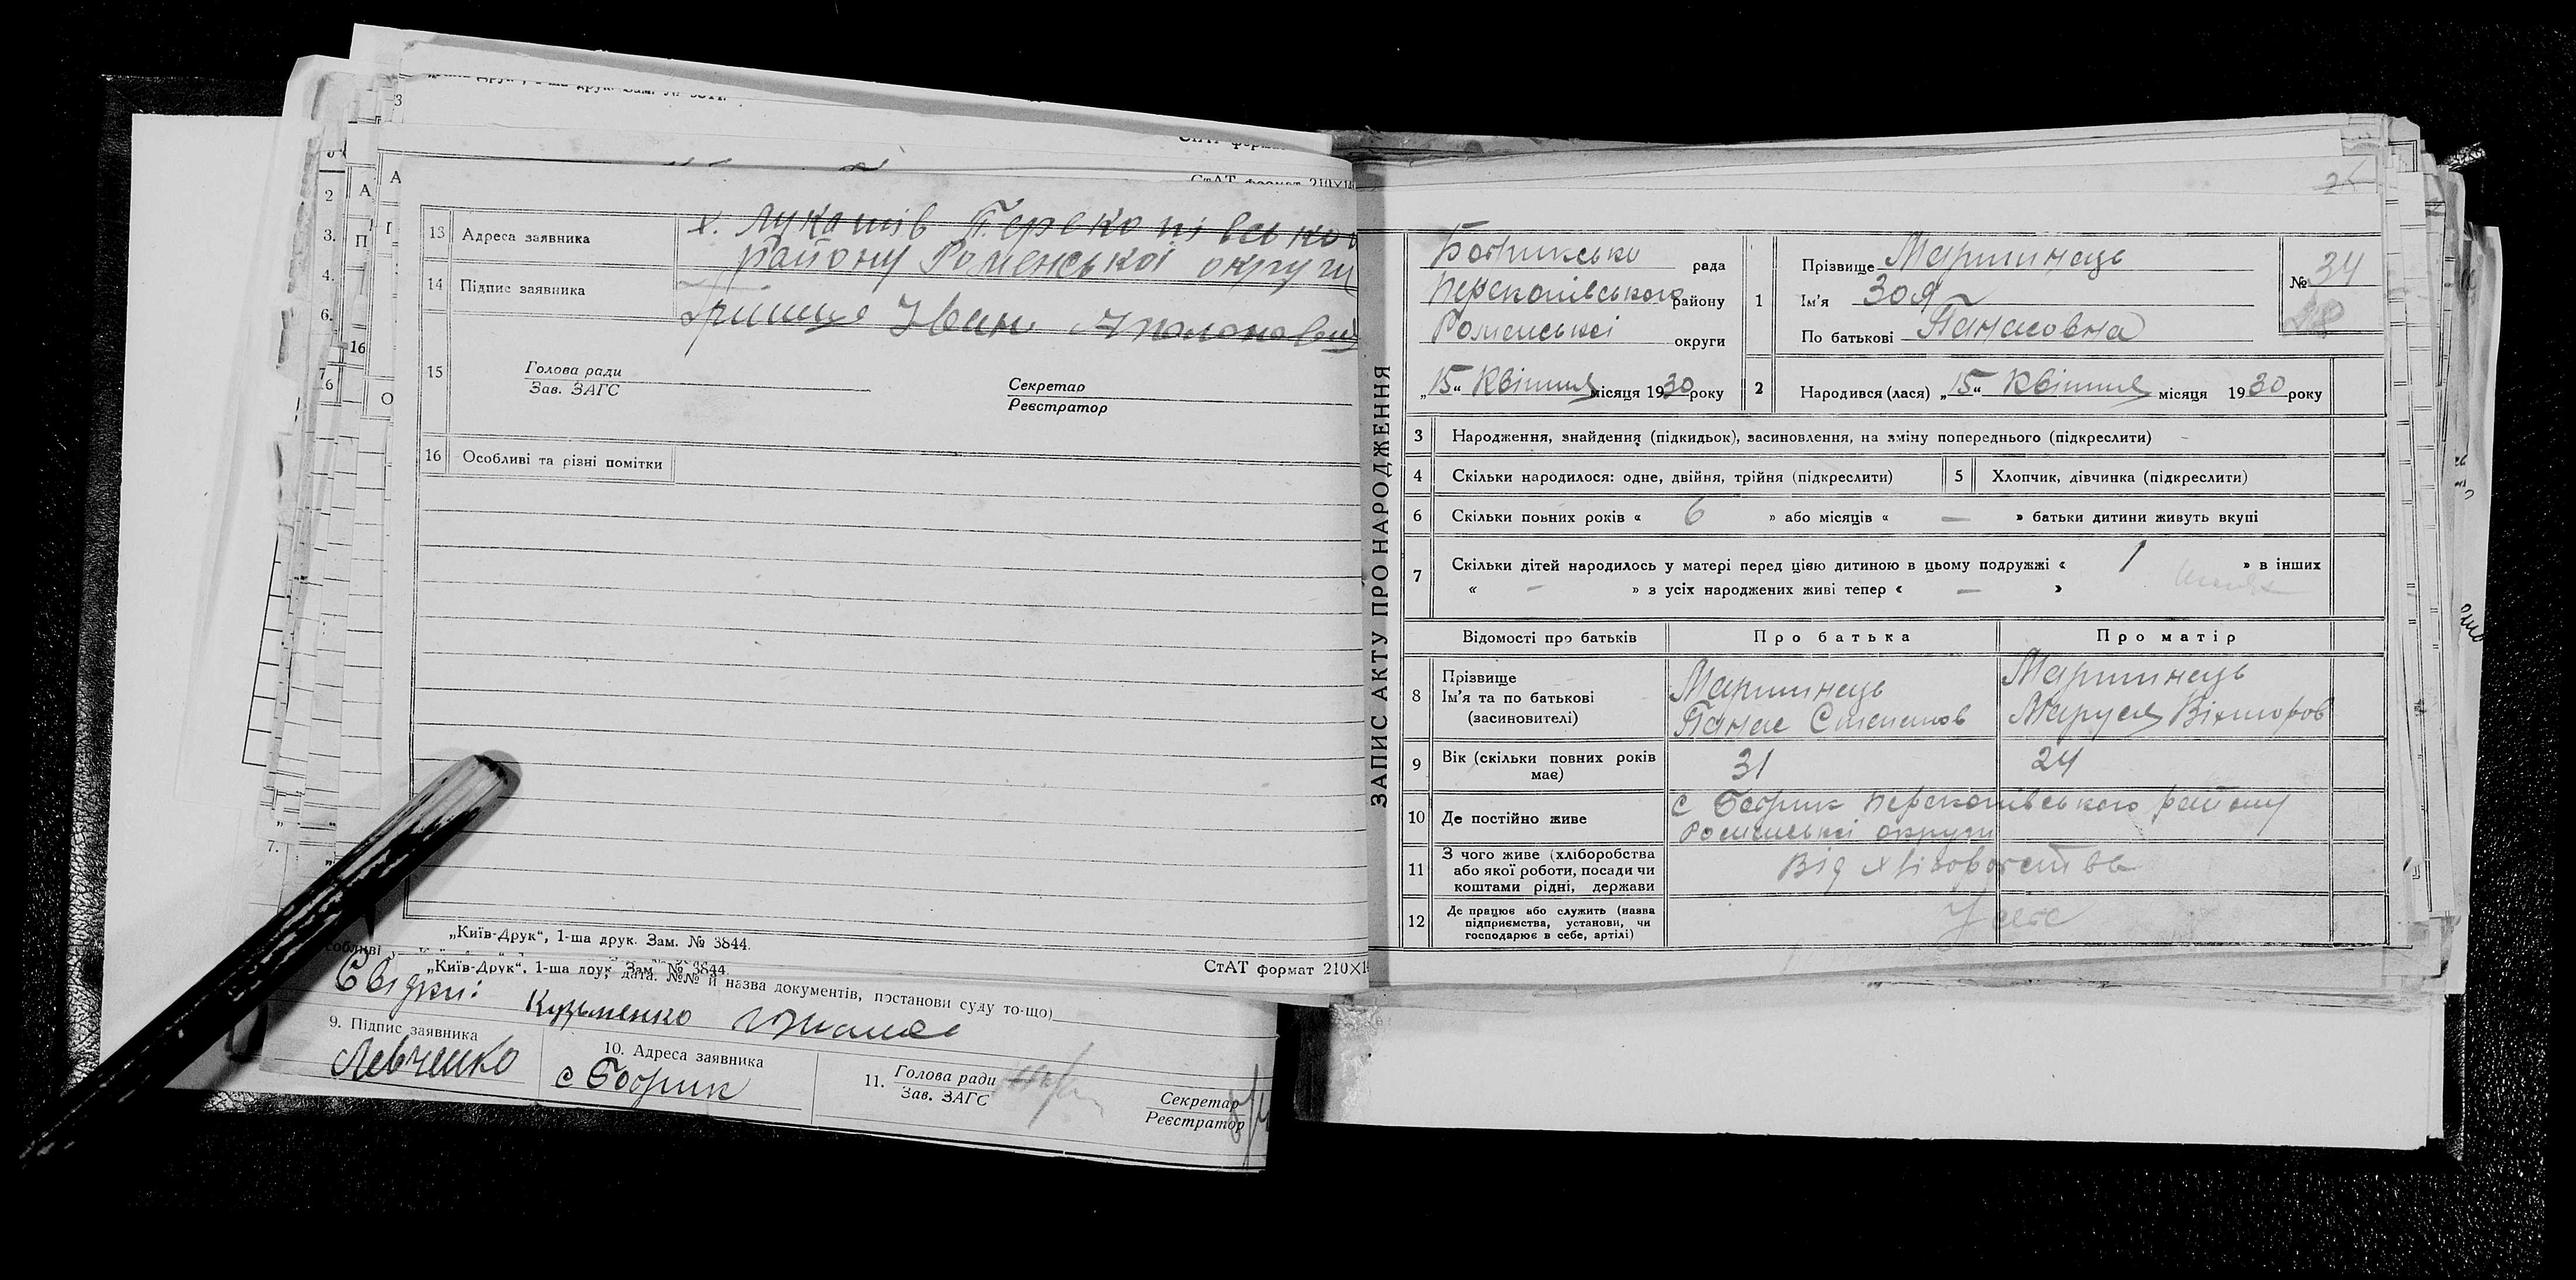 СтАТ формат 210×1
13 Адреса заявника х. Лукашів Перекопівсько
району Роменської округи
14 Підпис заявника
Гришце Іван
15 Голова ради
Зав. ЗАГС
Секретар
Реєстратор
16 Особливі та різні помітки
„Київ-Друк“, 1-ша друк. Зам. № 3844.
„Київ-Друк“, 1-ша друк. Зам. № 3844.
СтАТ формат 210×1
дата. №№ й назва документів, постанови суду то-що)
Свідки: Кузьменко
9. Підпис заявника
Левченко
10. Адреса заявника
с Бобрик
11. Голова ради
Зав. ЗАГС
Секретар
Реєстратор
ЗАПИС АКТУ ПРО НАРОДЖЕННЯ
Бобрикська рада
Перекопівського району
Роменської округи
„15“ Квітня місяця 1930 року
1 Прізвище Мартинець
Ім'я Зоя
По батькові Панасовна
№ 34
28
2 Народився (лася) „15“ Квітня місяця 1930 року
3 Народження, знайдення (підкидьок), засиновлення, на зміну попереднього (підкреслити)
4 Скільки народилося: одне, двійня, трійня (підкреслити) 5 Хлопчик, дівчинка (підкреслити)
6 Скільки повних років « 6 » або місяців « — » батьки дитини живуть вкупі
7 Скільки дітей народилось у матері перед цією дитиною в цьому подружжі « 1 » в інших
« — » з усіх народжених живі тепер « — »
Відомості про батьків Про батька Про матір
8 Прізвище
Ім'я та по батькові
(засиновителі)
Мартинець
Панас Степанов
Мартинець
Маруся Вікторов
9 Вік (скільки повних років
має)
31 24
10 Де постійно живе
с Бобрик Перекопівського району
Роменської округи
11 З чого живе (хліборобства
або якої роботи, посади чи
коштами рідні, держави
Від хліборобства
12 Де працює або служить (назва
підприємства, установи, чи
господарює в себе, артілі)
У себе